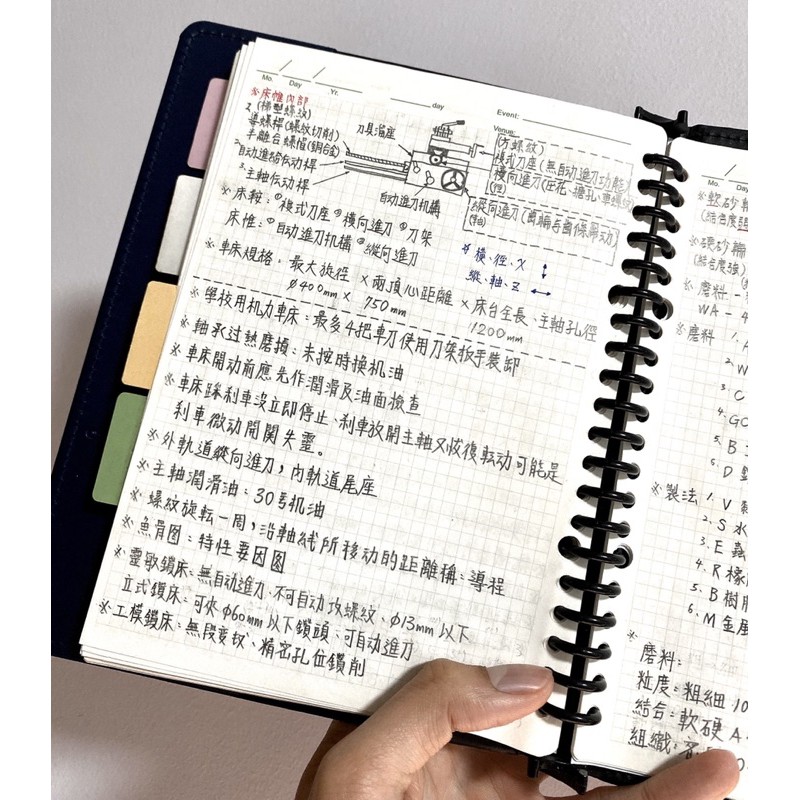 Mo. Day Yr.
day
Event:
Venue:
※床帷內部
1.(梯型螺紋)
導螺桿(螺紋切削)
半離合螺帽(銅合金)
2.自动進給伝动桿
3.主軸伝动桿
刀具溜座
自动進刀机構
(方螺紋)
複式刀座(無自动進刀功能)
橫向進刀(压花、搪孔、車螺紋)
(徑)
縱向進刀(齒輪与齒條帶动)
(軸)
※橫、徑、X ↕
縱、軸、Z ↔
※床鞍:①複式刀座②橫向進刀③刀架
床帷:①自动進刀机構②縱向進刀
※車床規格:最大旋徑×兩頂心距離×床台全長、主軸孔徑
φ400mm × 750mm 1200mm
※學校用机力車床:最多4把車刀使用刀架扳手裝卸
※軸承过熱磨損:未按時換机油
※車床開动前應先作潤滑及油面檢查
※車床踩刹車沒立即停止、刹車放開主軸又恢復転动可能是
刹車微动開関失靈。
※外軌道縱向進刀,內軌道尾座
※主軸潤滑油:30号机油
※螺紋旋転一周,沿軸线所移动的距離稱:導程
※魚骨图:特性要因図
※靈敏鑽床:無自动進刀.不可自动攻螺紋、φ13mm以下
立式鑽床:可夾φ60mm以下鑽頭、可自动進刀
※工模鑽床:無段变奴、精密孔位鑽削
Mo. Day
※軟砂輪
(結合度弱
※硬砂輪
(結合度強)
※磨料-
WA-4
※磨料 1. A
2. W
3. C
4. GC
5. B
6. D
※製法 1. V
2. S 水
3. E 蟲
4. R 橡
5. B 樹脂
6. M 金属
※
磨料:
粒度:粗細 10
結合:軟硬 A
組織: